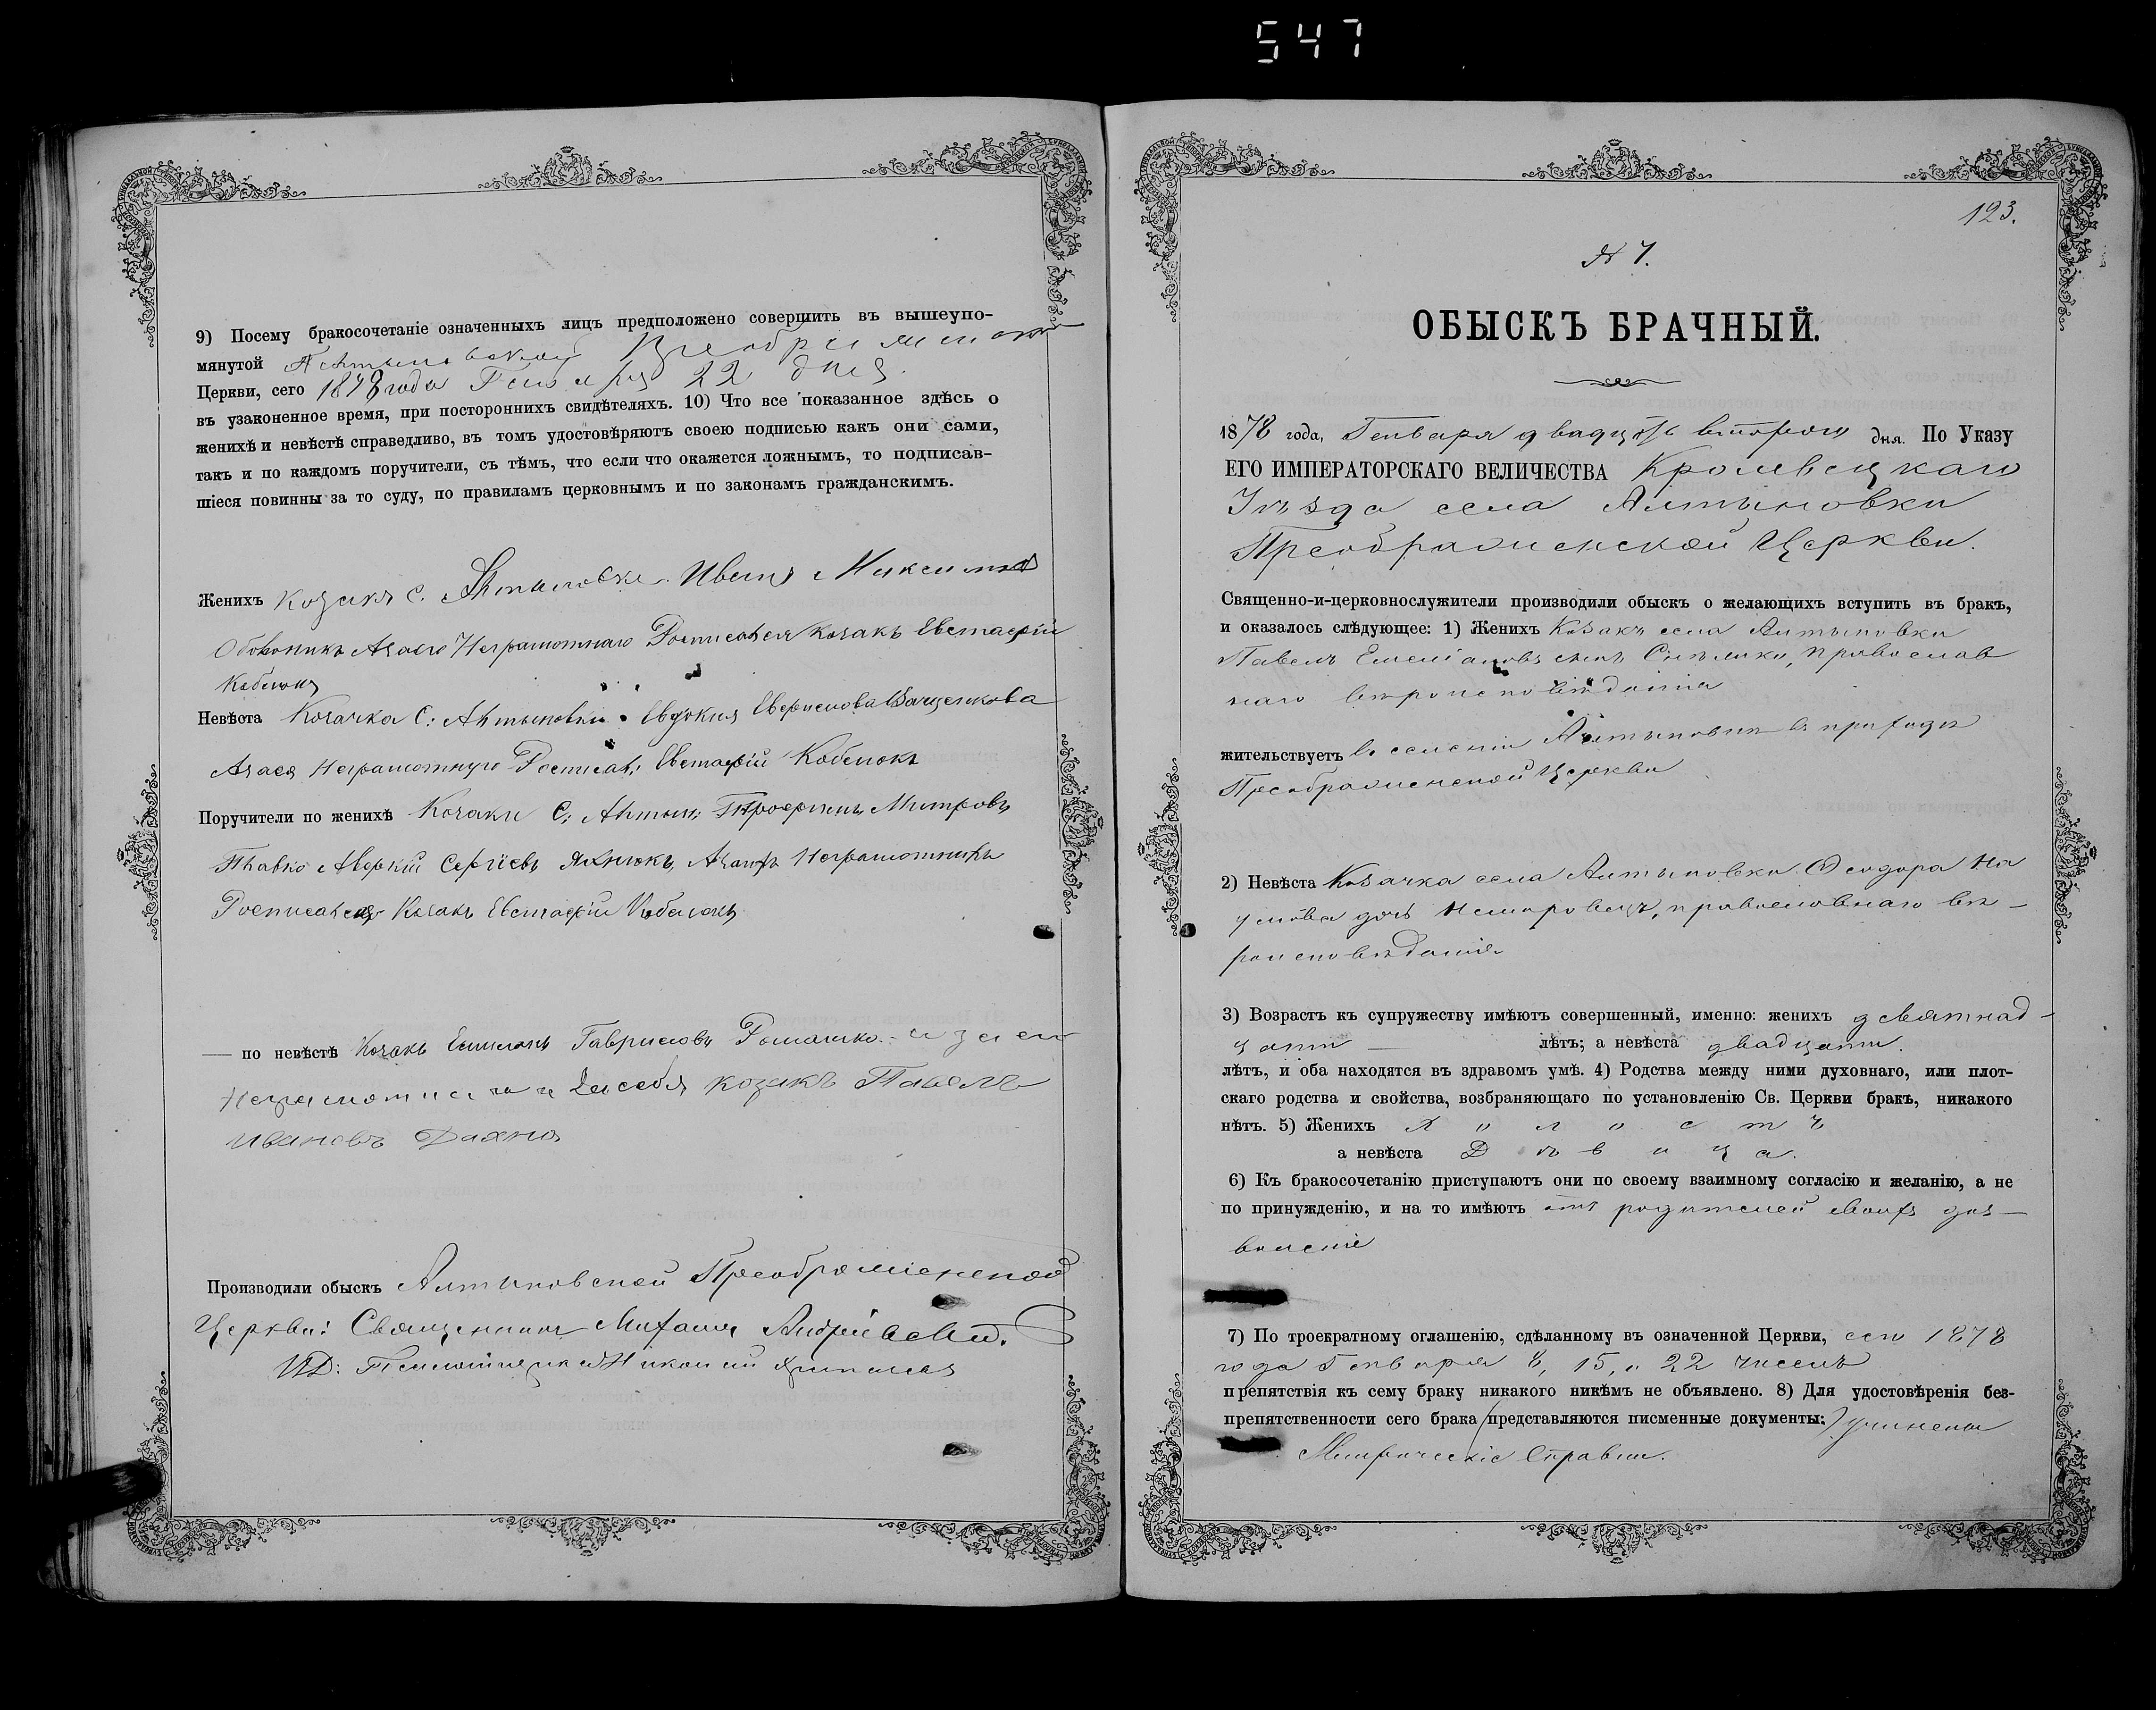 547
9) Посему бракосочетаніе означенныхъ лицъ предположено совершить въ вышеупо-
мянутой
Церкви, сего 1878 года Генваря 22 дня.
въ узаконенное время, при постороннихъ свидѣтеляхъ. 10) Что все показанное здѣсь о
женихѣ и невѣстѣ справедливо, въ томъ удостовѣряютъ своею подписью какъ они сами,
такъ и по каждомъ поручители, съ тѣмъ, что если что окажется ложнымъ, то подписав-
шіеся повинны за то суду, по правиламъ церковнымъ и по законамъ гражданскимъ.
Женихъ Козакъ с. Иванъ
Неграмотнаго Росписался Козакъ Евстафій
Кобелюкъ
Невѣста Козачка С: Евдокія
Неграмотную Росписалъ: Евстафій Кобелюкъ
Поручители по женихѣ Козаки С: Алтын: Трофимъ Митровъ
Аверкій Сергѣевъ Неграмотныхъ
Росписался Козакъ Евстафій Кобелюкъ
— по невѣстѣ Козакъ Гавриловъ Ромашко
за себя козакъ Павелъ
Ивановъ
Производили обыскъ Алтыновской Преображенской
Церкви: Священникъ Михаилъ
ИД:
123.
№ 7.
ОБЫСКЪ БРАЧНЫЙ.
1878 года, Генваря двадцать второго дня. По Указу
ЕГО ИМПЕРАТОРСКАГО ВЕЛИЧЕСТВА Кролевецкаго
Уѣзда села Алтыновки
Преображенской Церкви.
Священно-и-церковнослужители производили обыскъ о желающихъ вступить въ бракъ,
и оказалось слѣдующее: 1) Женихъ Козакъ села Алтыновки
Павелъ Емеліановъ сынъ православ
наго вѣроисповѣданія
жительствуетъ въ селеніи Алтыновкѣ въ приходѣ
Преображенской Церкви
2) Невѣста Козачка села Алтыновки Ѳеодора На
умова дочь православнаго вѣ-
роисповѣданія
3) Возрастъ къ супружеству имѣютъ совершенный, именно: женихъ девятнад-
цати — лѣтъ; а невѣста двадцати.
лѣтъ, и оба находятся въ здравомъ умѣ. 4) Родства между ними духовнаго, или плот-
скаго родства и свойства, возбраняющаго по установленію Св. Церкви бракъ, никакого
нѣтъ. 5) Женихъ Холостъ
а невѣста Дѣвица.
6) Къ бракосочетанію приступаютъ они по своему взаимному согласію и желанію, а не
по принужденію, и на то имѣютъ отъ родителей своихъ доз-
воленіе
7) По троекратному оглашенію, сдѣланному въ означенной Церкви, сего 1878
года Генваря 8, 15, и 22 чиселъ
препятствія къ сему браку никакого никѣмъ не объявлено. 8) Для удостовѣренія без-
препятственности сего брака (представляются писменные документы:) учинены
Метрическіе Справки.